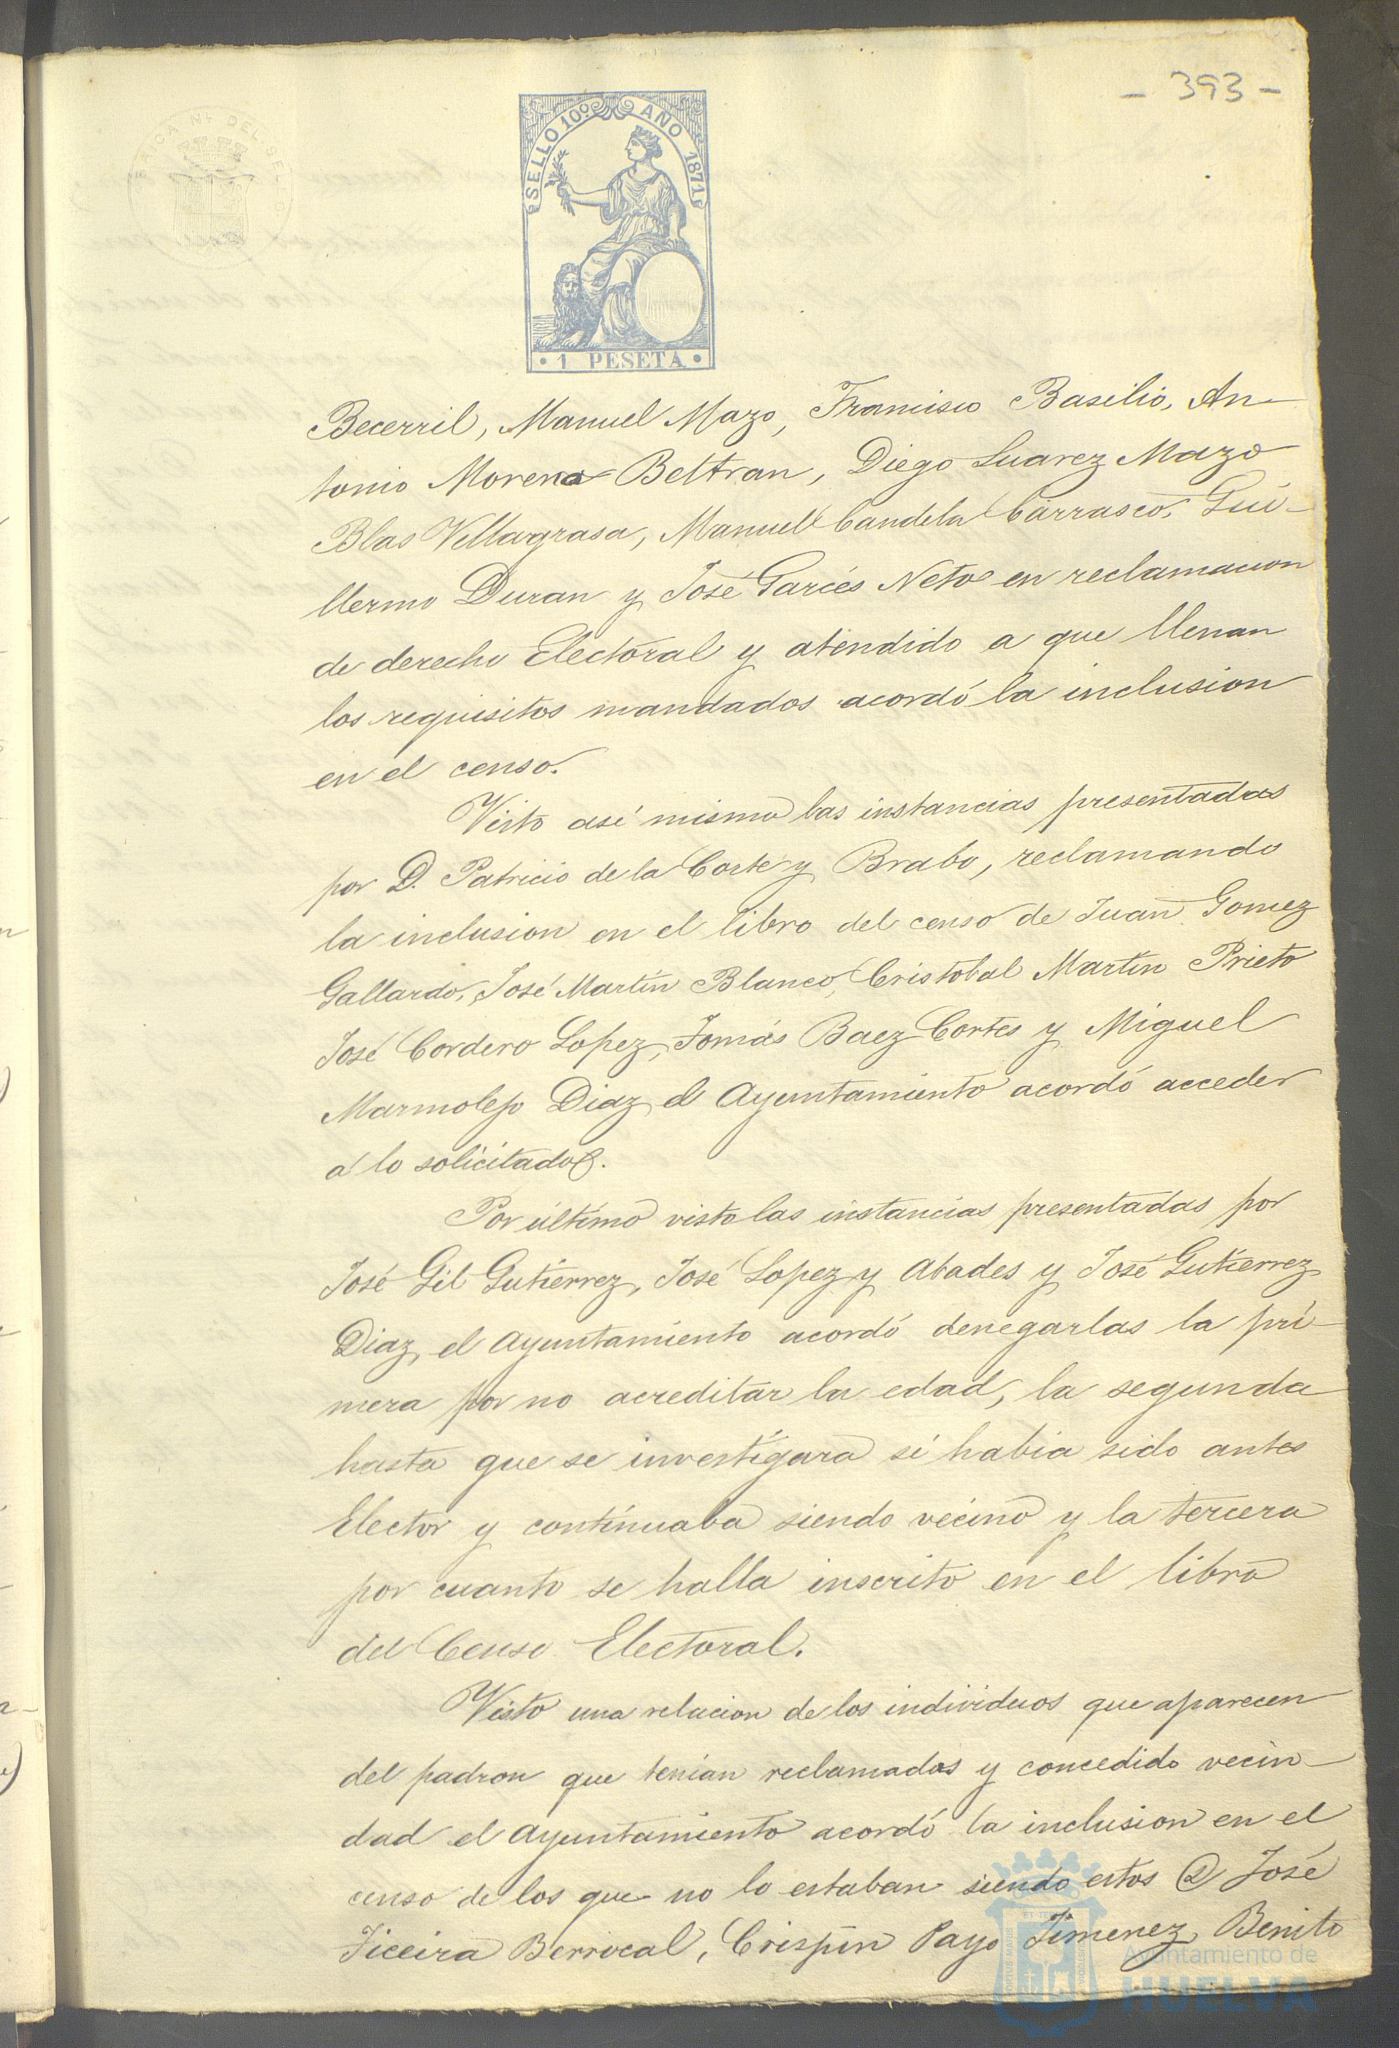 - 393 -
SELLO 10º AÑO 1871
· 1 PESETA ·
Becerril, Manuel Mazo, Francisco Basilio, An-
tonio Moreno Beltran, Diego Suarez Mazo
Blas Villagrasa, Manuel Candela Carrasco, Gui-
llermo Duran y José Garcés Neto en reclamacion
de derecho Electoral y atendido a que llenan
los requisitos mandados acordó la inclusion
en el censo.
Visto asi mismo las instancias presentadas
por D. Patricio de la Corte y Brabo, reclamando
la inclusion en el libro del censo de Juan Gomez
Gallardo, José Martin Blanco, Cristobal Martin Prieto
José Cordero Lopez, Tomás Baez Cortes y Miguel
Marmolejo Diaz el Ayuntamiento acordó acceder
á lo solicitado.
Por último visto las instancias presentadas por
José Gil Gutierrez, José Lopez y Abades y José Gutierrez
Diaz, el Ayuntamiento acordó denegarlas la pri-
mera por no acreditar la edad, la segunda
hasta que se investigara si habia sido antes
Elector y continuaba siendo vecino y la tercera
por cuanto se halla inscrito en el libro
del Censo Electoral.
Visto una relacion de los individuos que aparecen
del padron que tenian reclamados y concedido vecin-
dad el Ayuntamiento acordó la inclusion en el
censo de los que no lo estaban siendo estos D José
Ficeira Berrocal, Crispin Payo Jimenez, Benito
Ayuntamiento de
HUELVA